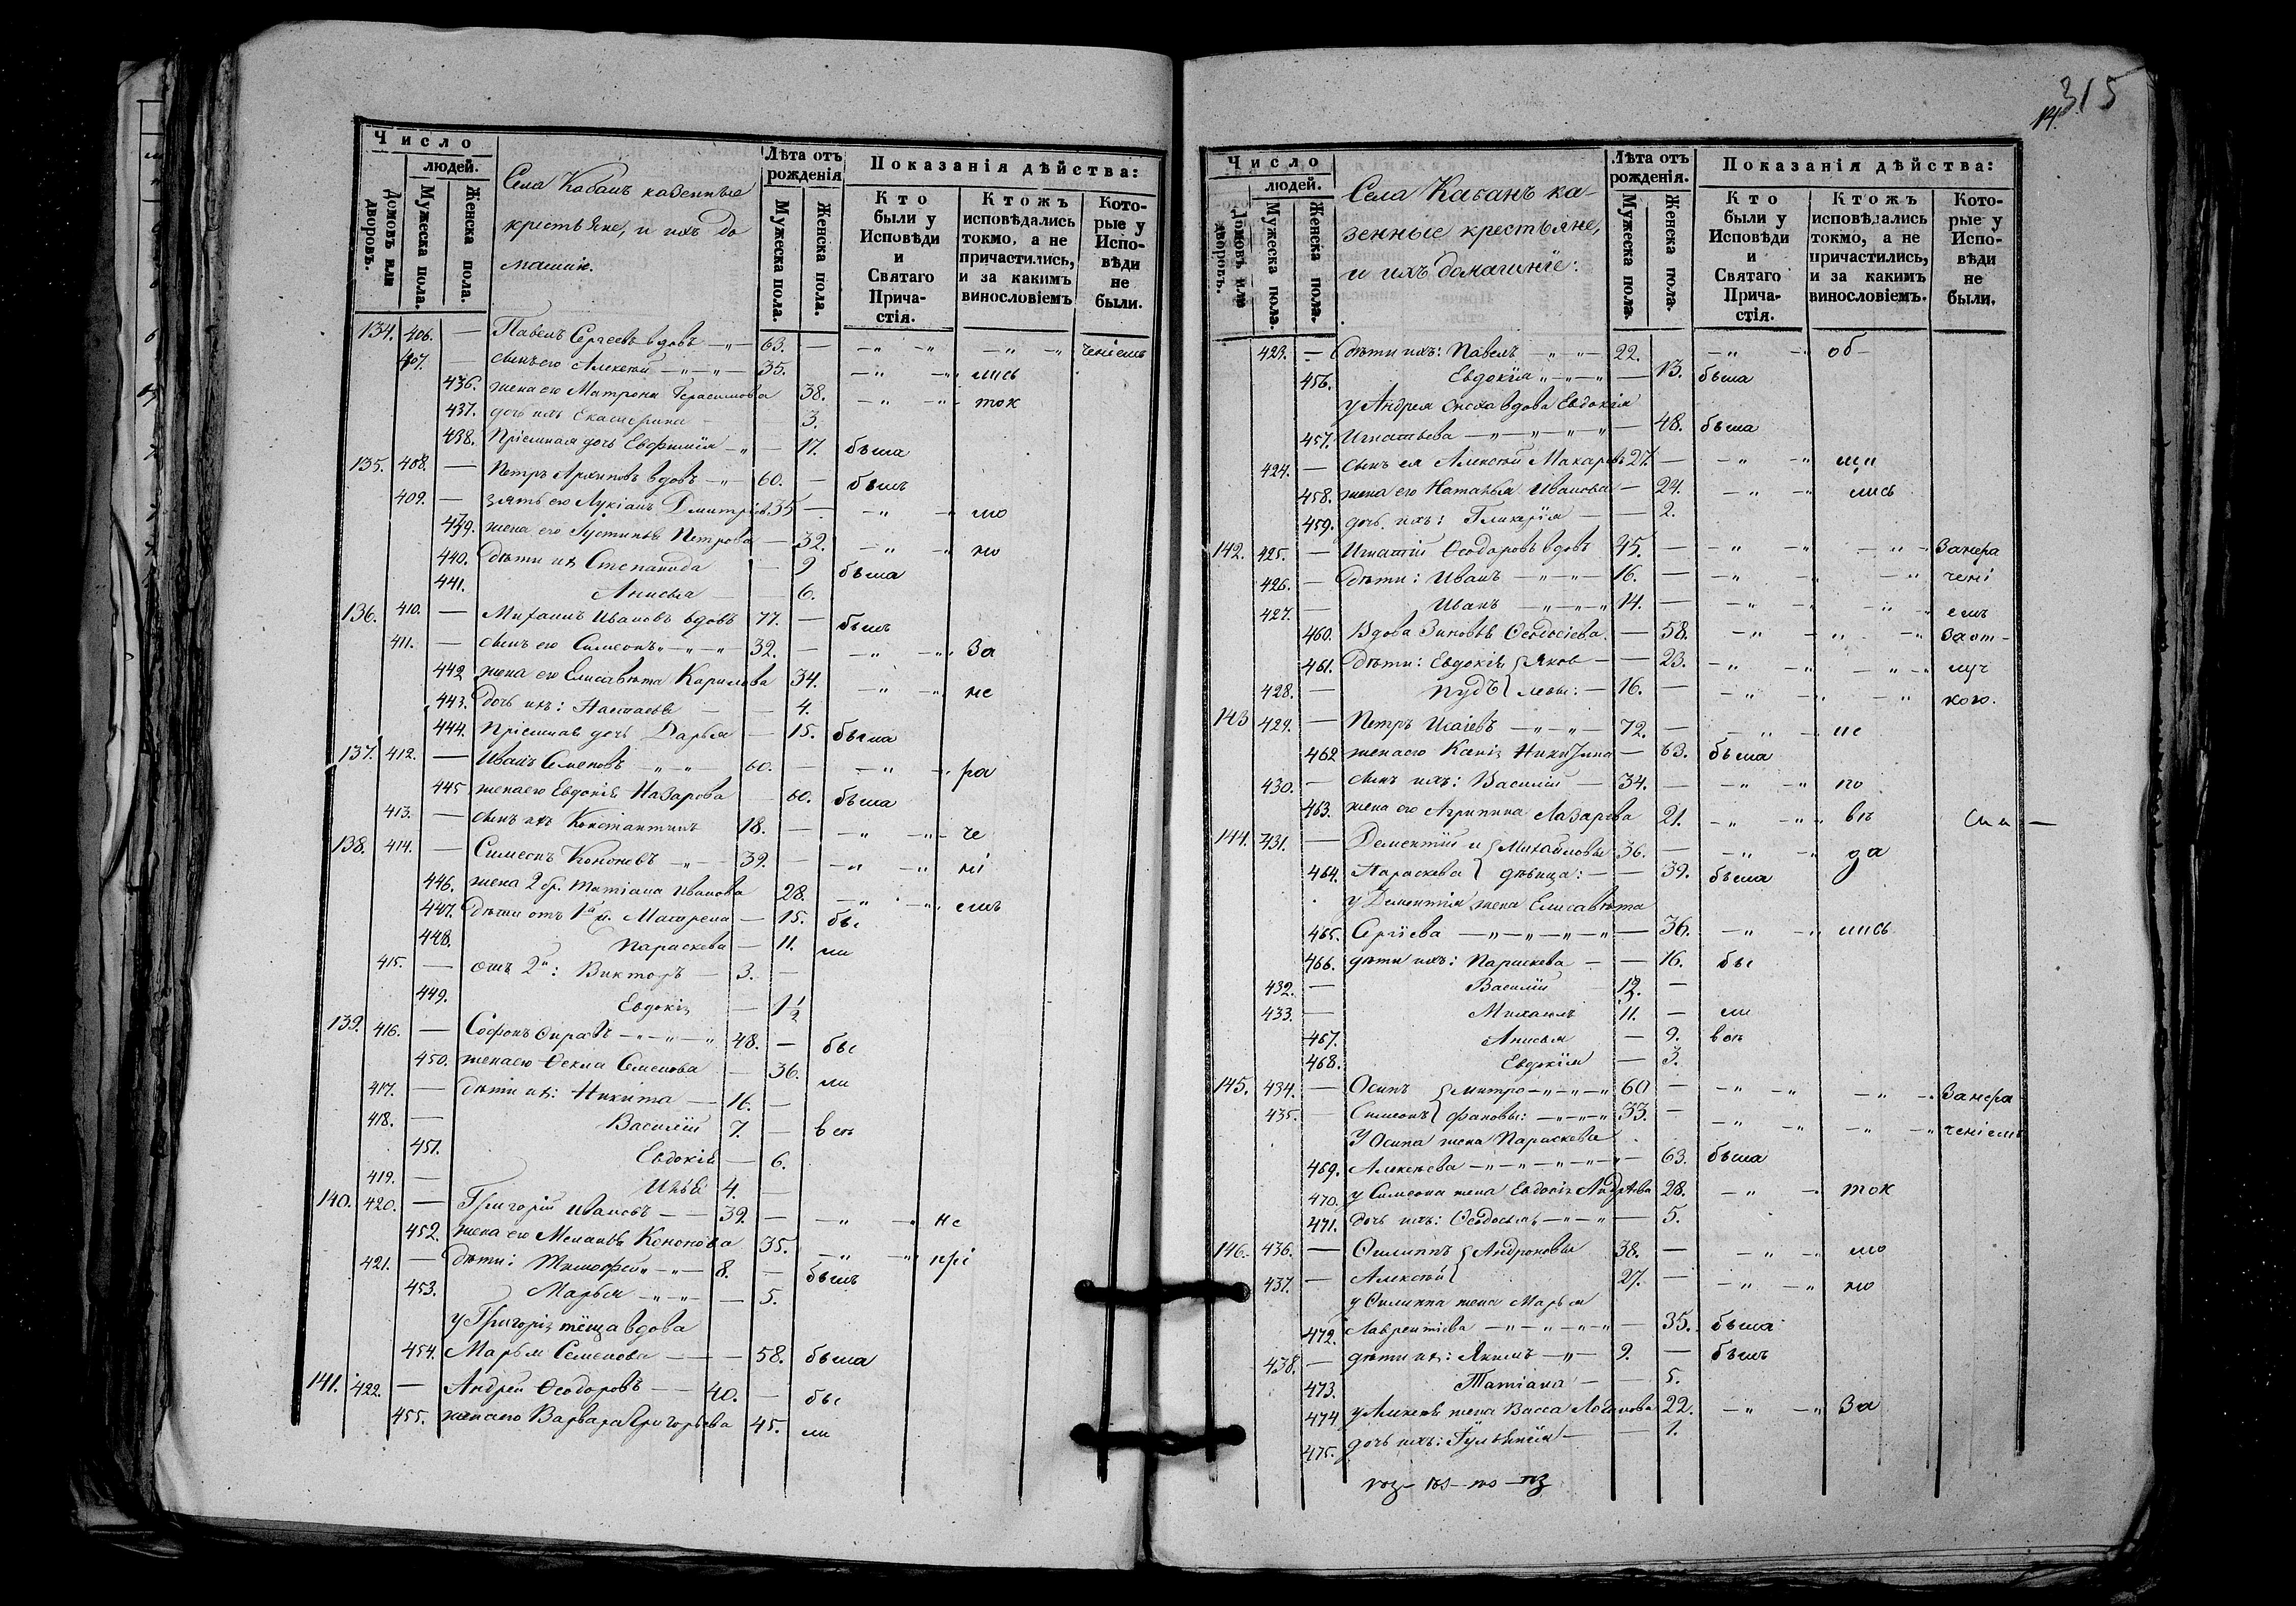 Число
людей.
Домовъ или дворовъ.
Мужеска пола.
Женска пола.
Села Кабанъ казенные
крестьяне, и ихъ до
машніе.
Лѣта отъ рожденія
Мужеска пола.
Женска пола.
Показанія дѣйства:
Кто были у Исповѣди и Святаго Прича-стія.
Ктожъ исповѣдались токмо, а не причастились, и за какимъ винословіемъ
Кото-рые у Испо-вѣди не были.
134. 406. — Павелъ Сергеевъ вдовъ — " — 63. — — " — " — " — " ченіемъ
407. — сынъ его Алексѣй — " — " — 35. — " — " лись
436. жена его Матрона Герасимова 38. — " — " ток
437. дочь ихъ Екатерина — — 3.
438. Пріемная дочь Евфимія — " — 17. была
135. 408. — Петръ Архиповъ вдовъ — " — 60. — былъ
409. — зять его Лукіанъ Дмитріевъ 35 — — " — " мо
439. жена его Іустинья Петрова — 32. — " — " по
440. Дѣти их Степанида — 9 была
441. Анисья — — 6.
136. 410. — Михаилъ Ивановъ вдовъ 77. — былъ
411. — сынъ его Симеонъ " — " — " 32. — — " — " за
442 жена его Елисавета Карпова 34. — " — " не
443. Дочь ихъ: Настасья — — 4.
444. Пріемная дочь Дарья — 15. была
137. 412. — Иванъ Семеновъ — " — " — 60. — — " — " ра
445 жена его Евдокія Назарова — 60. была
413. — сынъ ихъ Константинъ 18. — — " — " че
138. 414. — Симеонъ Кононовъ — " — 39. — — " — " ні
446. жена 2 бр. Татіана Иванова 28. — " — " емъ
447. Дѣти отъ 1й ж. Матрена — 15. бы
448. Параскева — 11. ли
415. — отъ 2й: Викторъ — 3. —
449. Евдокія — 1½
139. 416. — Софонъ — " — " — " 48. — бы
450. жена его Ѳекла Семенова — 36. ли
417. — дѣти их: Никита — 16. —
418. — Василій 7. — всѣ
451. Евдокія — 6.
419. — Илья 4. —
140. 420. — Григорій Ивановъ — — 39. — — " — " не
452. жена его Меланья Кононова 35. — " — " прі
421. — дѣти: Тимофей " — " — 8. — былъ
453. Марья — " — " — 5.
у Григорія тёща вдова
454. Марья Семенова — — — 58. была
141. 422. — Андрей Ѳеодоровъ — — 40. — бы
455. жена его Варвара Григорьева 45. ли
315
14.
Число
людей.
Домовъ или дворовъ.
Мужеска пола.
Женска пола.
Села Кабанъ ка-
зенные крестьяне,
и ихъ домашніе:
Лѣта отъ рожденія.
Мужеска пола.
Женска пола.
Показанія дѣйства:
Кто были у Исповѣди и Святаго Прича-стія.
Ктожъ исповѣдались токмо, а не причастились, и за какимъ винословіемъ.
Кото-рые у Испо-вѣди не были.
423. — Дѣти ихъ: Павелъ — " — " — 22. — " — " об-
456. Евдокія " — " — " — 13. была
у Андрея сноха вдова Евдокія
457. Игнатьева — " — " — " — " — 48. была
424. — сынъ ея Алексѣй Макаровъ 27. — — " — " щи
458. жена его Наталья Иванова — 24. — " — " лись
459. дочь ихъ: Гликерія — — 2.
142. 425. — Игнатій Ѳеодоровъ вдовъ 45. — — " — " — " — занера
426. — Дѣти: Иванъ — " — " — 16. — — " — " — " чені
427. — Иванъ — " — " — " 14. — — " — " — " — " емъ
460. Вдова Зиновья Ѳеодосіева — 58. — " — " — " заот-
461. Дѣти: Евдокія Яков — — 23. — " — " — " — " луч
428. — Пудъ левы: — 16. — — " — " — " кою.
143 429. — Петръ Исаіевъ — " — " — 72. — — " — " не
462 жена его Ксенія Никитина — 63. была
430. — сынъ ихъ: Василій — 34. — — " — " по
463. жена его Агрипина Лазарева 21. — " — " вѣ
144. 431. — Дементій и Михайловы 36. — — " — " да
464. Параскева дѣвица: — — 39. была
у Дементія жена Елисавета
465. Сергіева — " — " — " — " — 36. — " — " лись
466. дѣти ихъ: Параскева — — 16. бы
432. — Василій 12. —
433. — Михаилъ 11. — ли
467. Анисья — 9. всѣ
468. Евдокія — 3.
145. 434. — Осипъ Митро — " — " — " 60 — — " — " — " — " занера
435. — Симеонъ фановы: — " — " — " 33. — — " — " — " — " ченіемъ
У Осипа жена Параскева
469. Алексѣева — " — " — " — " — " — 63. была
470. у Симеона жена Евдокія Андреева 28. — " — " ток
471. дочь ихъ: Ѳеодосья — " — " — 5.
146. 436. — Филиппъ Андроновы 38. — — " — " мо
437. — Алексѣй 27. — — " — " по
у Филиппа жена Марья
472. Лаврентіева — " — " — " — " — 35. была
438. — дѣти их: Якимъ — " — 9. — былъ
473. Татіана — — 5.
474 у Алексѣя жена Васса Логинова 22. — " — " за
475. дочь ихъ: Іульянія — — 1.